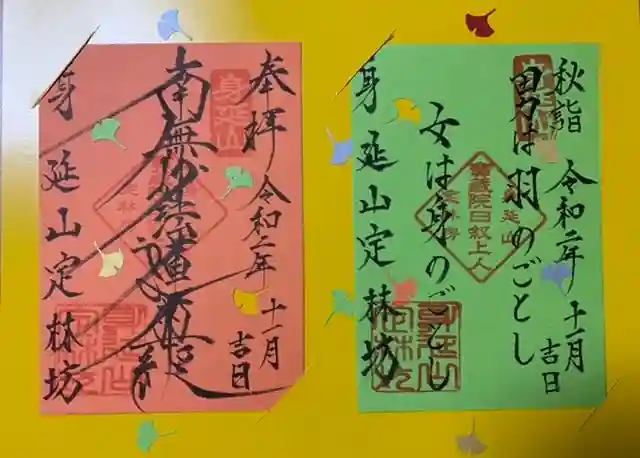 秋詣 令和二年 十一月 吉日
男は羽のごとし
女は身のごとし
身延山定林坊
身延山
寶蔵院日叙上人
奉拝 令和二年 十一月 吉日
南無妙法蓮華経
身延山定林坊
身延山